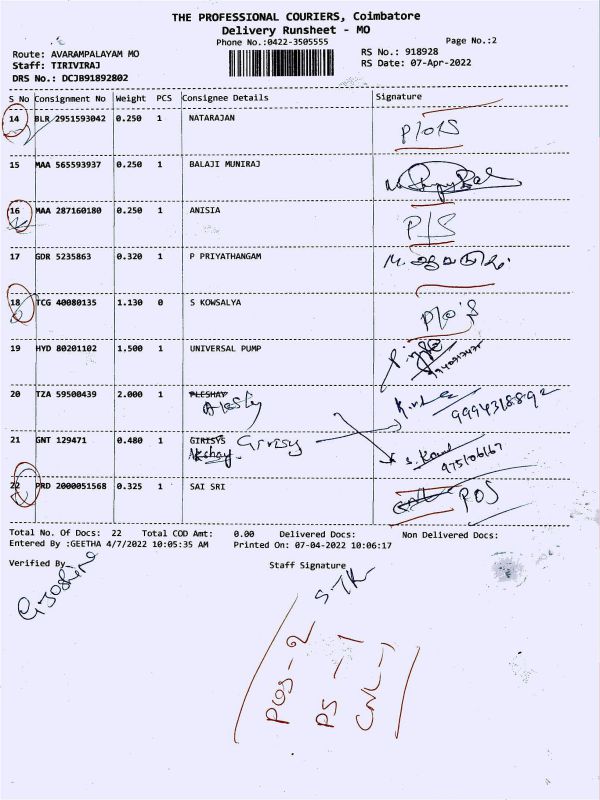 THE PROFESSIONAL COURIERS, Coimbatore
Delivery Runsheet - MO
Phone No.:0422-3505555
Page No.:2
Route: AVARAMPALAYAM MO
RS No.: 918928
Staff: TIRIVIRAJ
RS Date: 07-Apr-2022
DRS No.: DCJB91892802
S No Consignment No Weight PCS Consignee Details Signature
14 BLR 2951593042 0.250 1 NATARAJAN
15 MAA 565593937 0.250 1 BALAJI MUNIRAJ
16 MAA 287160180 0.250 1 ANISIA
P/S
17 GDR 5235863 0.320 1 P PRIYATHANGAM
18 TCG 40080135 1.130 0 S KOWSALYA
P/o's
19 HYD 80201102 1.500 1 UNIVERSAL PUMP
20 TZA 59500439 2.000 1 PLESHAY
9994318892
21 GNT 129471 0.480 1 GIRISYS Girisy
Akshay
22 PRD 2000051568 0.325 1 SAI SRI
POS
Total No. Of Docs: 22 Total COD Amt: 0.00 Delivered Docs: Non Delivered Docs:
Entered By :GEETHA 4/7/2022 10:05:35 AM Printed On: 07-04-2022 10:06:17
Verified By
Staff Signature
POS - 2
PS - 1